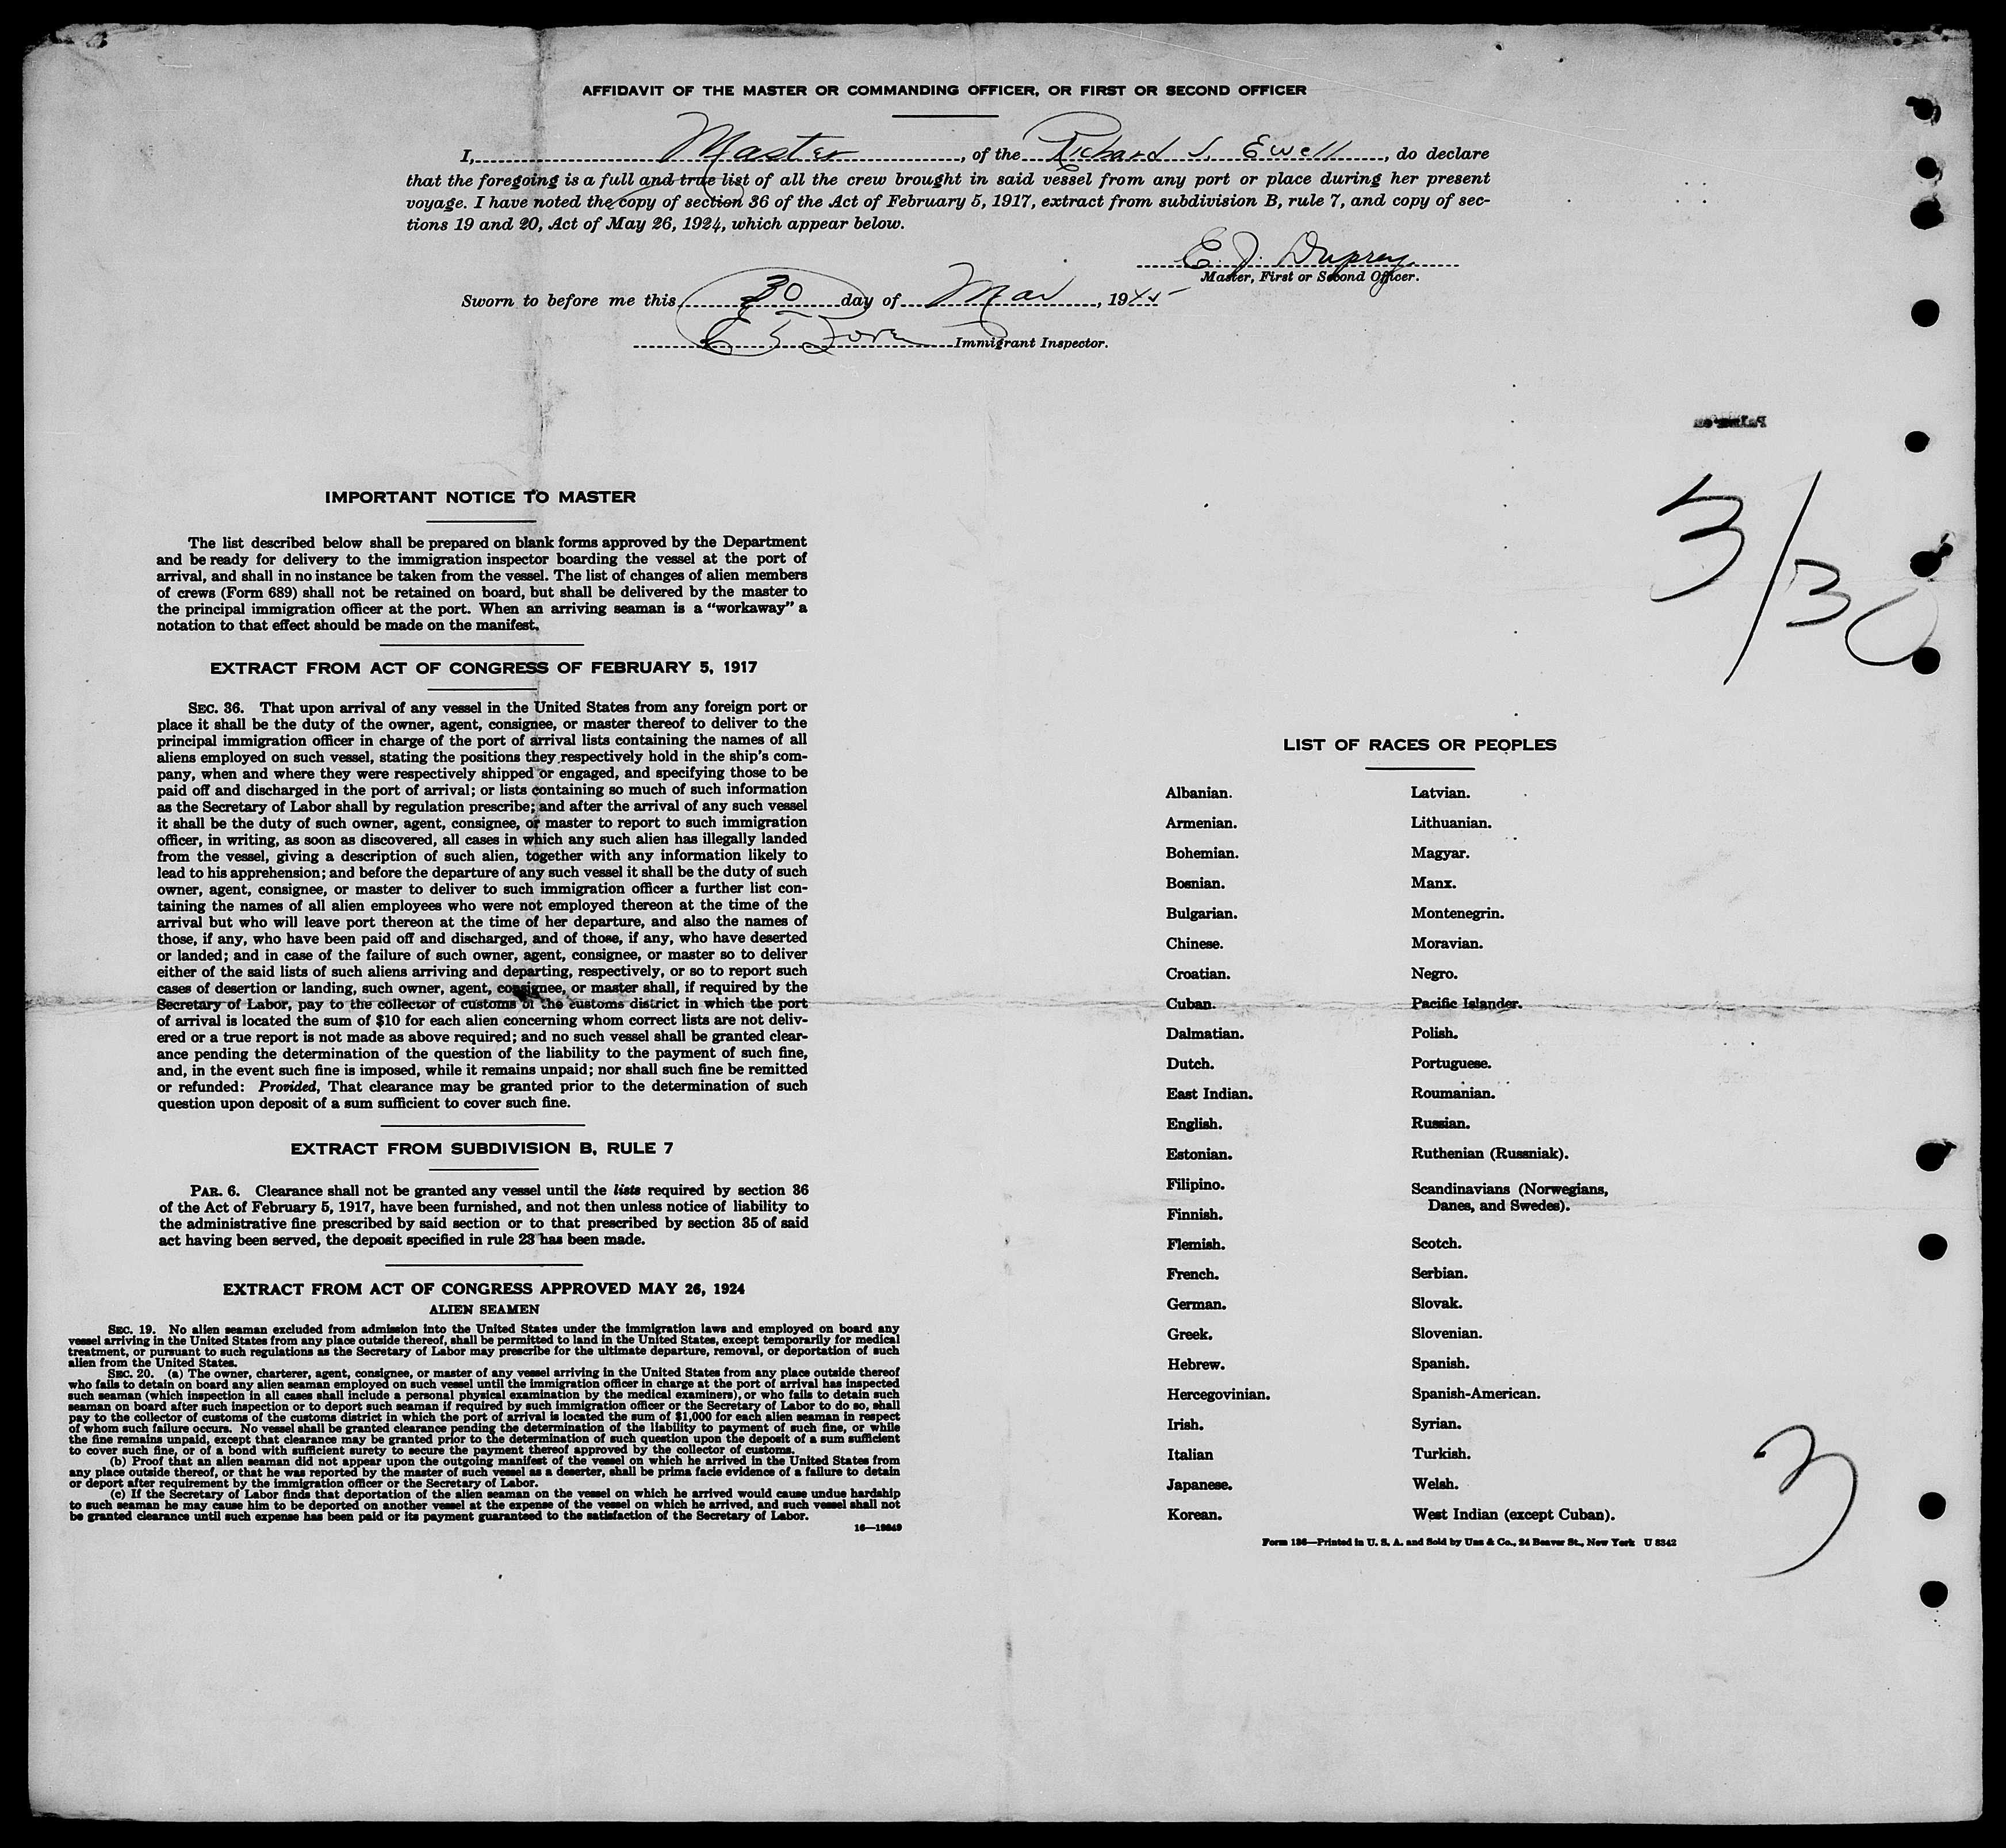 AFFIDAVIT OF THE MASTER OR COMMANDING OFFICER, OR FIRST OR SECOND OFFICER
I, Master, of the Richard S. Ewell, do declare
that the foregoing is a full and true list of all the crew brought in said vessel from any port or place during her present
voyage. I have noted the copy of section 36 of the Act of February 5, 1917, extract from subdivision B, rule 7, and copy of sec-
tions 19 and 20, Act of May 26, 1924, which appear below.
E. J. Duprey
Master, First or Second Officer.
Sworn to before me this 30 day of Mar, 1945
Immigrant Inspector.
3/30
IMPORTANT NOTICE TO MASTER
The list described below shall be prepared on blank forms approved by the Department
and be ready for delivery to the immigration inspector boarding the vessel at the port of
arrival, and shall in no instance be taken from the vessel. The list of changes of alien members
of crews (Form 689) shall not be retained on board, but shall be delivered by the master to
the principal immigration officer at the port. When an arriving seaman is a "workaway" a
notation to that effect should be made on the manifest.
EXTRACT FROM ACT OF CONGRESS OF FEBRUARY 5, 1917
SEC. 36. That upon arrival of any vessel in the United States from any foreign port or
place it shall be the duty of the owner, agent, consignee, or master thereof to deliver to the
principal immigration officer in charge of the port of arrival lists containing the names of all
aliens employed on such vessel, stating the positions they respectively hold in the ship's com-
pany, when and where they were respectively shipped or engaged, and specifying those to be
paid off and discharged in the port of arrival; or lists containing so much of such information
as the Secretary of Labor shall by regulation prescribe; and after the arrival of any such vessel
it shall be the duty of such owner, agent, consignee, or master to report to such immigration
officer, in writing, as soon as discovered, all cases in which any such alien has illegally landed
from the vessel, giving a description of such alien, together with any information likely to
lead to his apprehension; and before the departure of any such vessel it shall be the duty of such
owner, agent, consignee, or master to deliver to such immigration officer a further list con-
taining the names of all alien employees who were not employed thereon at the time of the
arrival but who will leave port thereon at the time of her departure, and also the names of
those, if any, who have been paid off and discharged, and of those, if any, who have deserted
or landed; and in case of the failure of such owner, agent, consignee, or master so to deliver
either of the said lists of such aliens arriving and departing, respectively, or so to report such
cases of desertion or landing, such owner, agent, consignee, or master shall, if required by the
Secretary of Labor, pay to the collector of customs of the customs district in which the port
of arrival is located the sum of $10 for each alien concerning whom correct lists are not deliv-
ered or a true report is not made as above required; and no such vessel shall be granted clear-
ance pending the determination of the question of the liability to the payment of such fine,
and, in the event such fine is imposed, while it remains unpaid; nor shall such fine be remitted
or refunded: Provided, That clearance may be granted prior to the determination of such
question upon deposit of a sum sufficient to cover such fine.
EXTRACT FROM SUBDIVISION B, RULE 7
PAR. 6. Clearance shall not be granted any vessel until the lists required by section 36
of the Act of February 5, 1917, have been furnished, and not then unless notice of liability to
the administrative fine prescribed by said section or to that prescribed by section 35 of said
act having been served, the deposit specified in rule 23 has been made.
EXTRACT FROM ACT OF CONGRESS APPROVED MAY 26, 1924
ALIEN SEAMEN
SEC. 19. No alien seaman excluded from admission into the United States under the immigration laws and employed on board any
vessel arriving in the United States from any place outside thereof, shall be permitted to land in the United States, except temporarily for medical
treatment, or pursuant to such regulations as the Secretary of Labor may prescribe for the ultimate departure, removal, or deportation of such
alien from the United States.
SEC. 20. (a) The owner, charterer, agent, consignee, or master of any vessel arriving in the United States from any place outside thereof
who fails to detain on board any alien seaman employed on such vessel until the immigration officer in charge at the port of arrival has inspected
such seaman (which inspection in all cases shall include a personal physical examination by the medical examiners), or who fails to detain such
seaman on board after such inspection or to deport such seaman if required by such immigration officer or the Secretary of Labor to do so, shall
pay to the collector of customs of the customs district in which the port of arrival is located the sum of $1,000 for each alien seaman in respect
of whom such failure occurs. No vessel shall be granted clearance pending the determination of the liability to payment of such fine, or while
the fine remains unpaid, except that clearance may be granted prior to the determination of such question upon the deposit of a sum sufficient
to cover such fine, or of a bond with sufficient surety to secure the payment thereof approved by the collector of customs.
(b) Proof that an alien seaman did not appear upon the outgoing manifest of the vessel on which he arrived in the United States from
any place outside thereof, or that he was reported by the master of such vessel as a deserter, shall be prima facie evidence of a failure to detain
or deport after requirement by the immigration officer or the Secretary of Labor.
(c) If the Secretary of Labor finds that deportation of the alien seaman on the vessel on which he arrived would cause undue hardship
to such seaman he may cause him to be deported on another vessel at the expense of the vessel on which he arrived, and such vessel shall not
be granted clearance until such expense has been paid or its payment guaranteed to the satisfaction of the Secretary of Labor.
16—19849
LIST OF RACES OR PEOPLES
Albanian.
Armenian.
Bohemian.
Bosnian.
Bulgarian.
Chinese.
Croatian.
Cuban.
Dalmatian.
Dutch.
East Indian.
English.
Estonian.
Filipino.
Finnish.
Flemish.
French.
German.
Greek.
Hebrew.
Hercegovinian.
Irish.
Italian
Japanese.
Korean.
Latvian.
Lithuanian.
Magyar.
Manx.
Montenegrin.
Moravian.
Negro.
Pacific Islander.
Polish.
Portuguese.
Roumanian.
Russian.
Ruthenian (Russniak).
Scandinavians (Norwegians,
Danes, and Swedes).
Scotch.
Serbian.
Slovak.
Slovenian.
Spanish.
Spanish-American.
Syrian.
Turkish.
Welsh.
West Indian (except Cuban).
Form 136—Printed in U. S. A. and Sold by Unz & Co., 24 Beaver St., New York U 8342
3